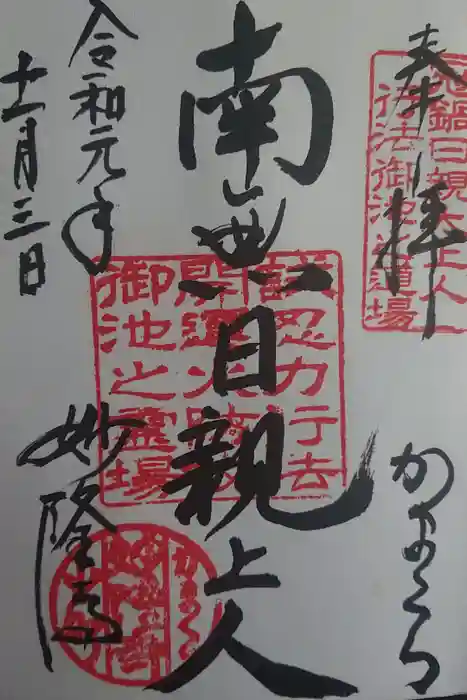 奉拝
かまくら
冠鍋日親大上人
行法御池之道場
南無日親上人
忍力行去
開運火
御池之霊場
令和元年
十二月三日
妙隆寺
かまくら